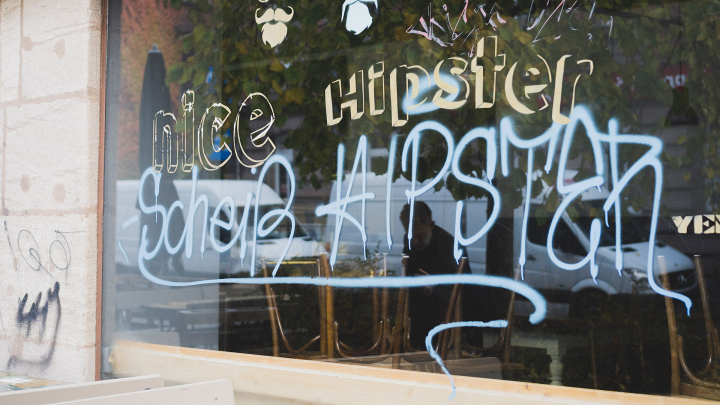 nice Hipster
Scheiß HIPSTER